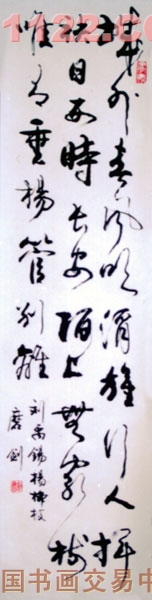 1122.co
城外春风吹酒旗行人挥
袂日西時长安陌上無穷树
唯有垂楊管别離
刘禹錫楊柳枝
国书画交易中